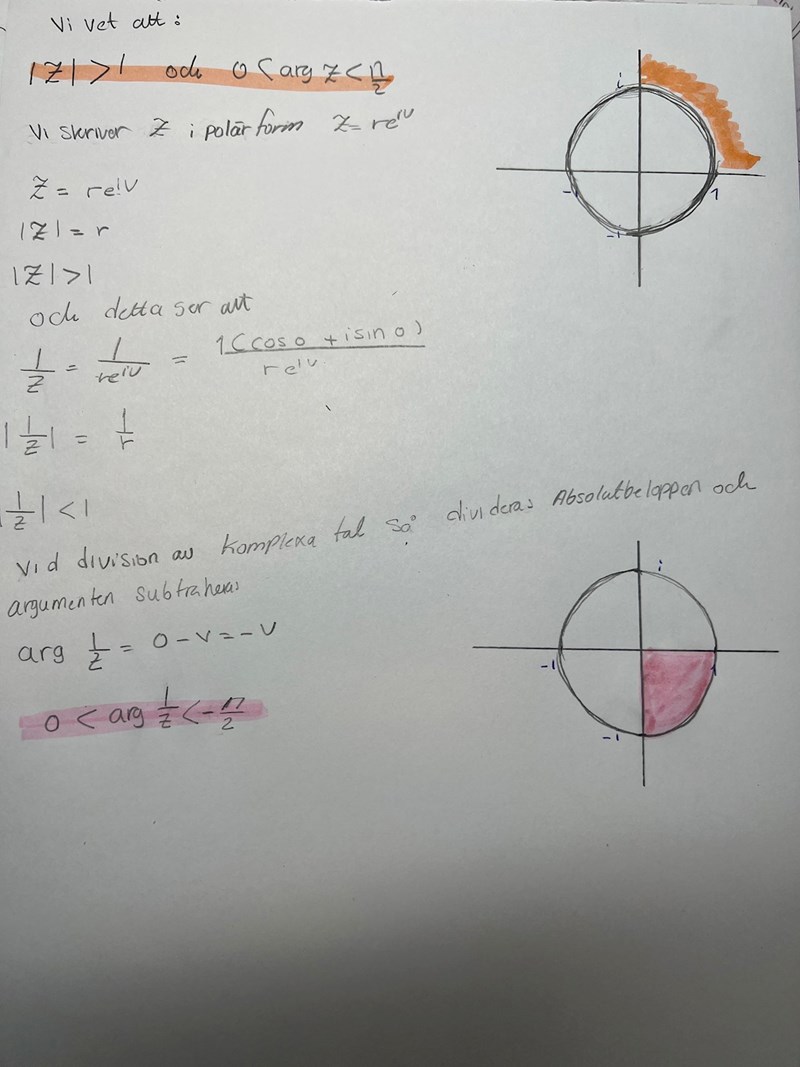 Vi vet att :
|Z| > 1 och 0 < arg z < π/2
Vi skriver Z i polär form Z = re^iv
Z = re^iv
|Z| = r
|Z| > 1
och detta ger att
1/Z = 1/re^iv = 1(cos 0 + i sin 0)/re^iv
|1/Z| = 1/r
|1/Z| < 1
Vid division av komplexa tal så divideras Absolutbeloppen och
argumenten subtraheras
arg 1/Z = 0 - v = -v
0 < arg 1/Z < -π/2
i
-1
1
-1
i
-1
1
-1